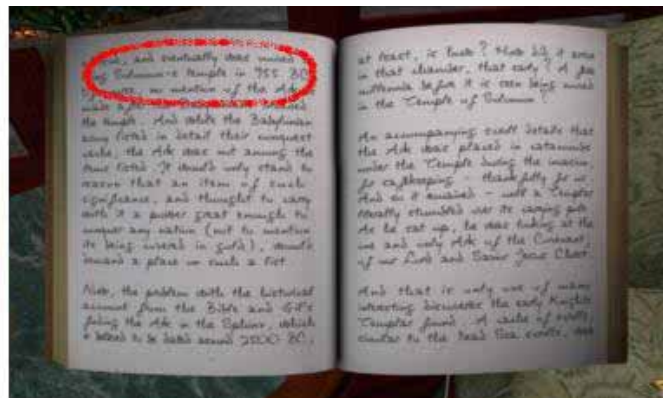 and eventually was moved
Solomon's temple in 955 BC
no mention of the Ark
made
the temple. And while the Babylonian
army listed in detail their conquest
the Ark was not among the
items listed. It would only stand to
reason that an item of such
significance, and thought to carry
with it a power great enough to
conquer any nation (not to mention
its being covered in gold), would
a place on such a list
Now, the problem with the historical
account from the Bible and
finding the Ark in the Sphinx, which
is to be dated around 2500 BC,
at least, is
in that chamber, that early? A few
millennia before it is even being moved
in the Temple of Solomon?
An accompanying scroll details that
the Ark was placed in catacombs
under the Temple during the invasion,
for safekeeping - thankfully for us.
And so it remained - until a Templar
literally stumbled over its carrying pole.
As he sat up, he was looking at the
one and only Ark of the Covenant,
of our Lord and Savior Jesus Christ.
And that is only one of many
interesting discoveries the early Knights
Templar found. A cache of scrolls,
similar to the Dead Sea scrolls, was